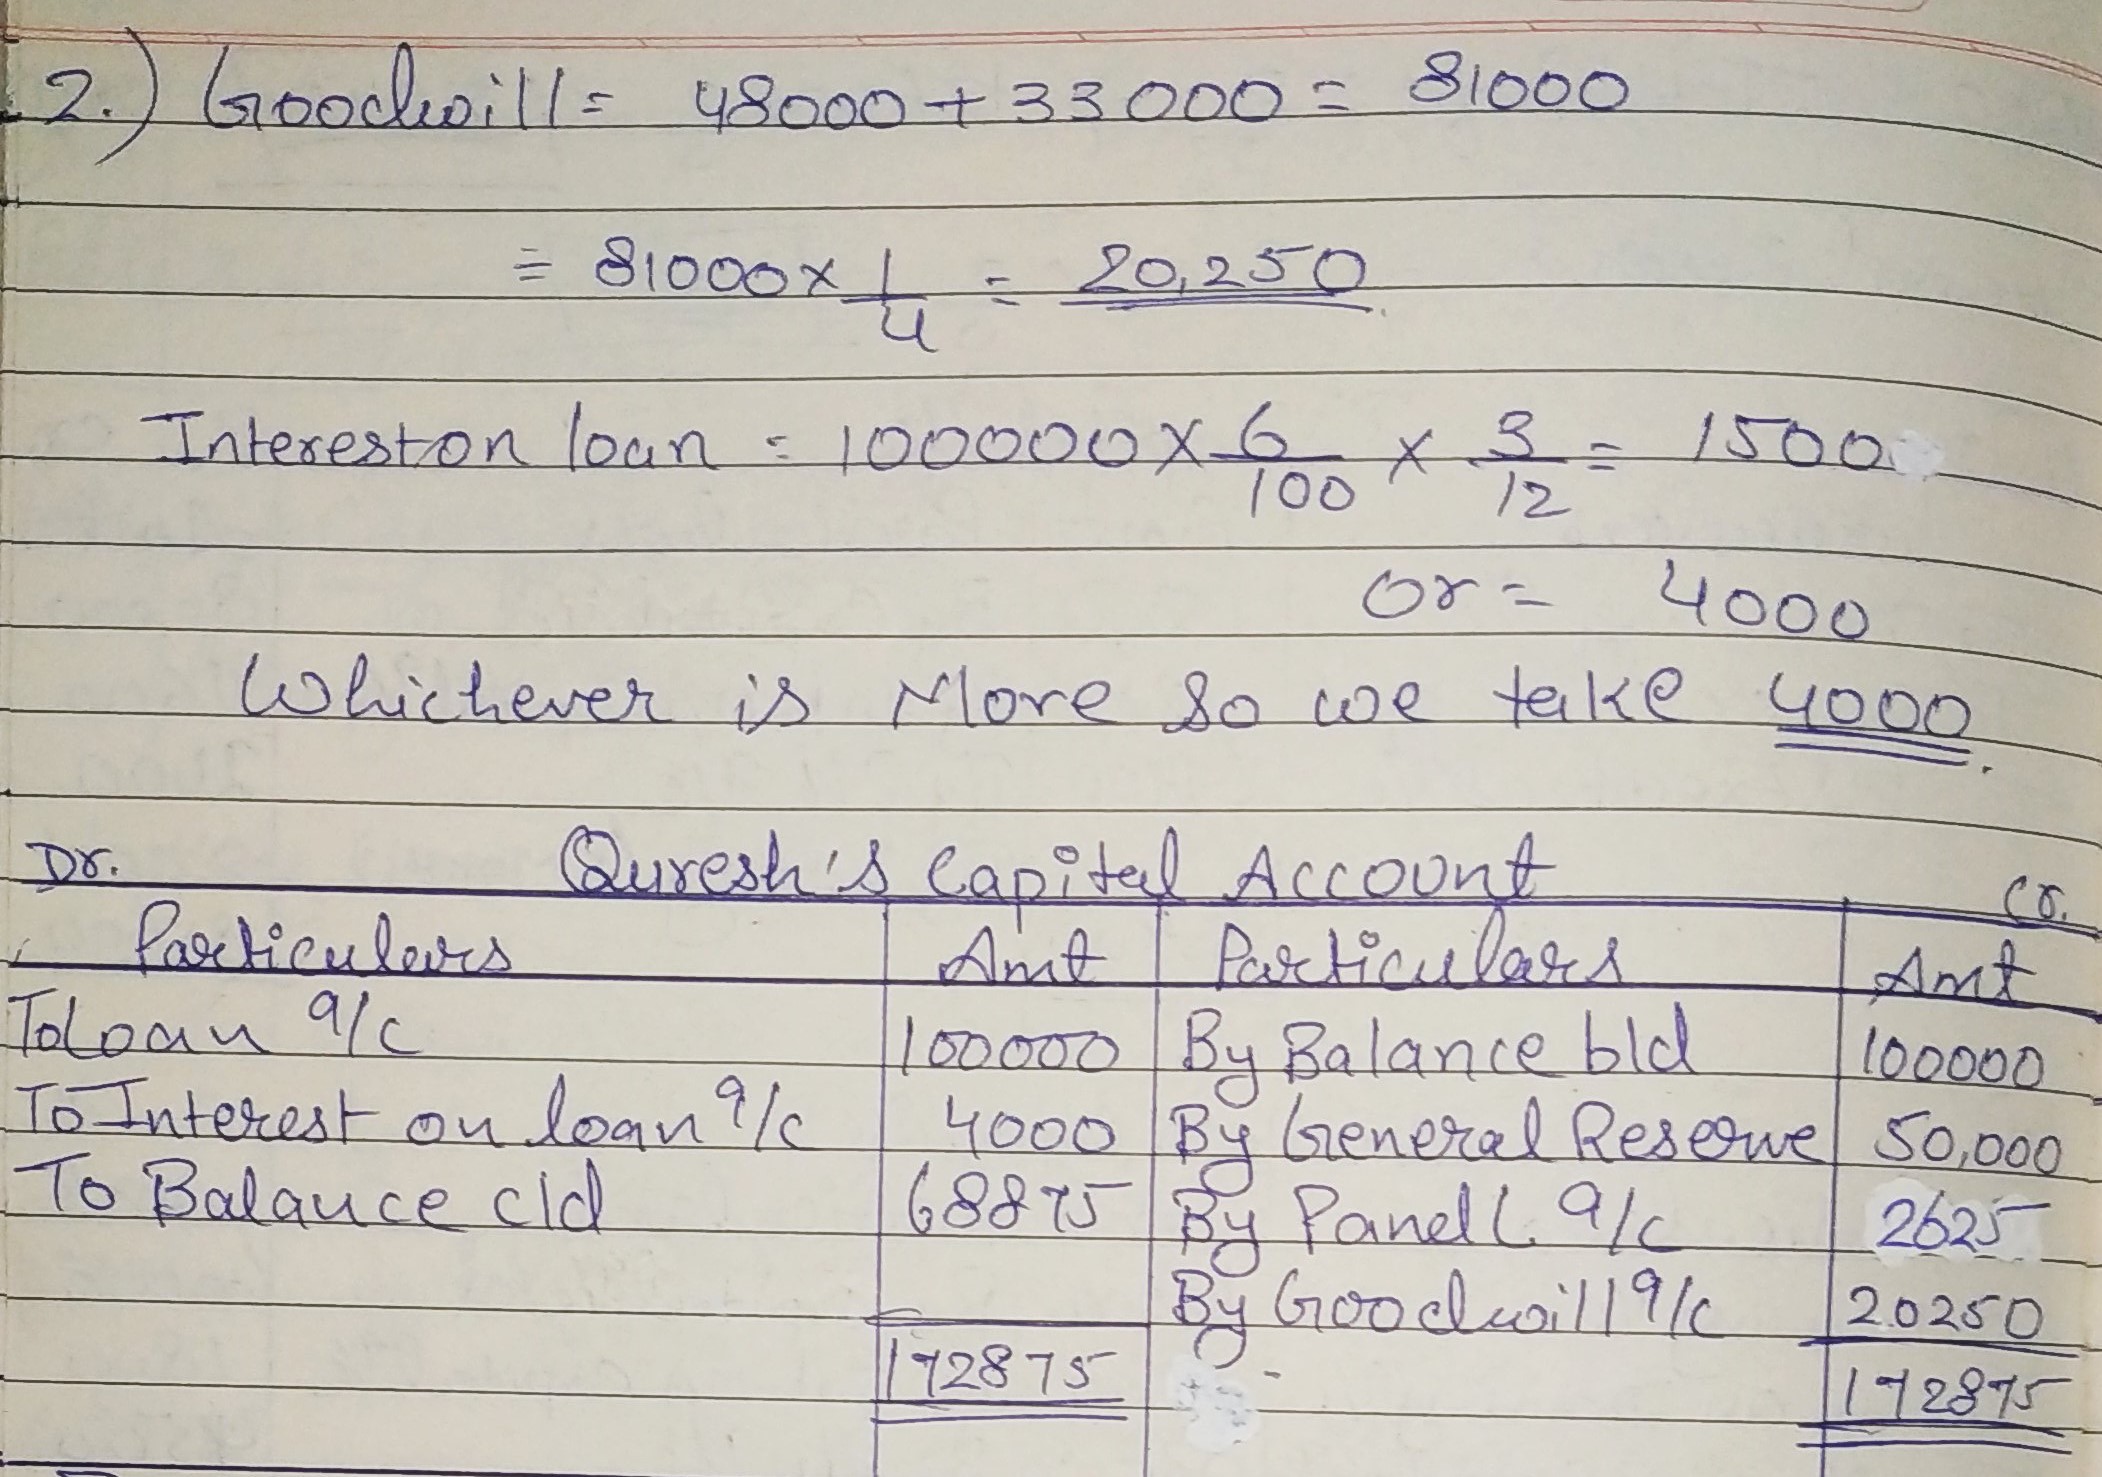 2.) Goodwill = 48000 + 33000 = 81000
= 81000 × 1/4 = 20,250
Interest on loan = 100000 × 6/100 × 3/12 = 1500
or = 4000
Whichever is More So we take 4000.
Dr. Quresh's Capital Account Cr.
Particulars Amt Particulars Amt
To Loan a/c 100000 By Balance b/d 100000
To Interest on loan a/c 4000 By General Reserve 50,000
To Balance c/d 68875 By P and L a/c 2625
By Goodwill a/c 20250
172875 172875